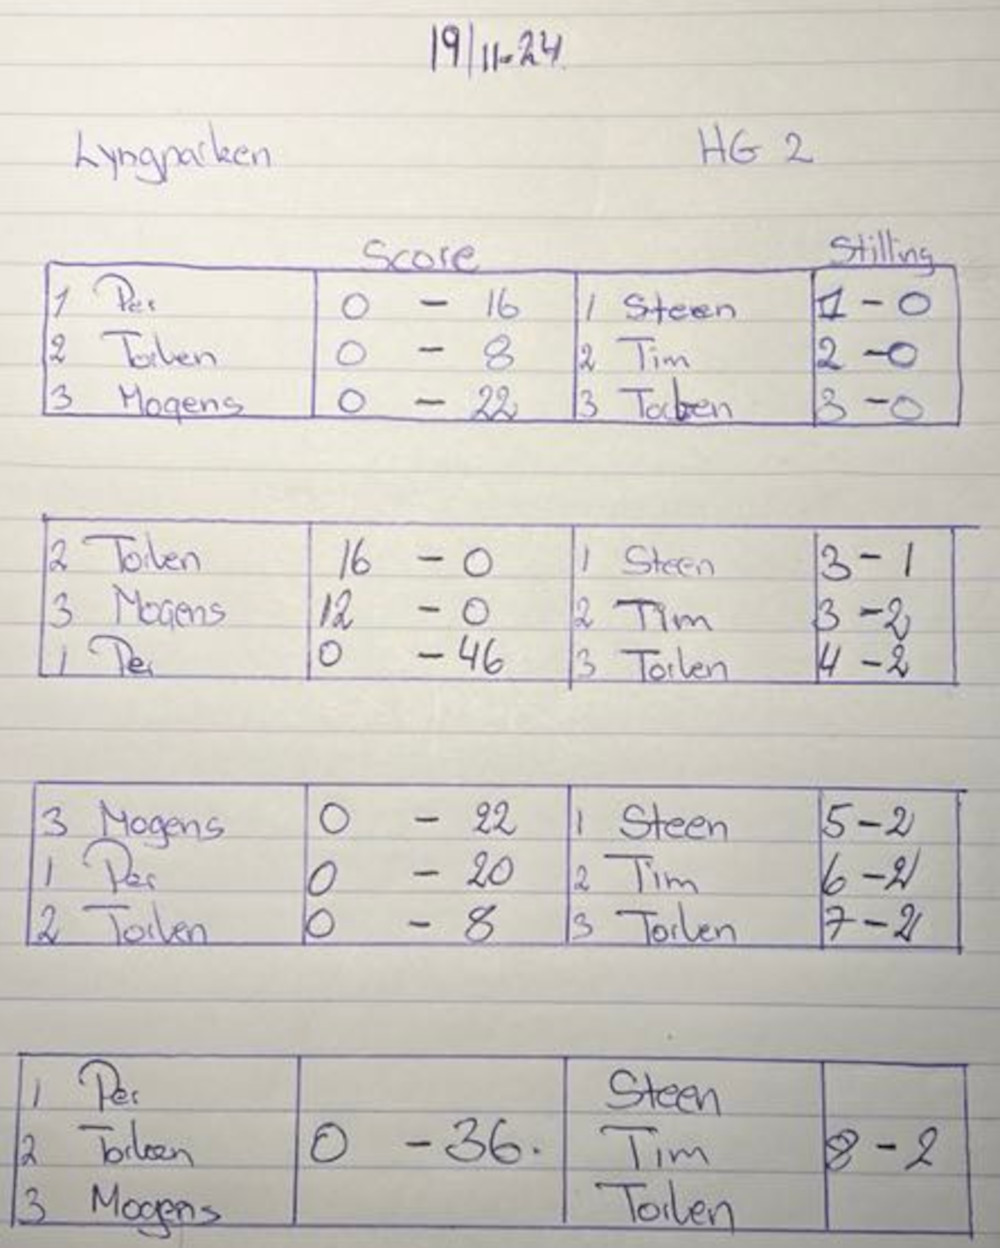 19/11-24
Lyngparken HG 2
Score Stilling
1 Per 0 - 16 1 Steen 1 - 0
2 Torben 0 - 8 2 Tim 2 - 0
3 Mogens 0 - 22 3 Torben 3 - 0
2 Torben 16 - 0 1 Steen 3 - 1
3 Mogens 12 - 0 2 Tim 3 - 2
1 Per 0 - 46 3 Torben 4 - 2
3 Mogens 0 - 22 1 Steen 5 - 2
1 Per 0 - 20 2 Tim 6 - 2
2 Torben 0 - 8 3 Torben 7 - 2
1 Per Steen
2 Torben 0 - 36. Tim 8 - 2
3 Mogens Torben